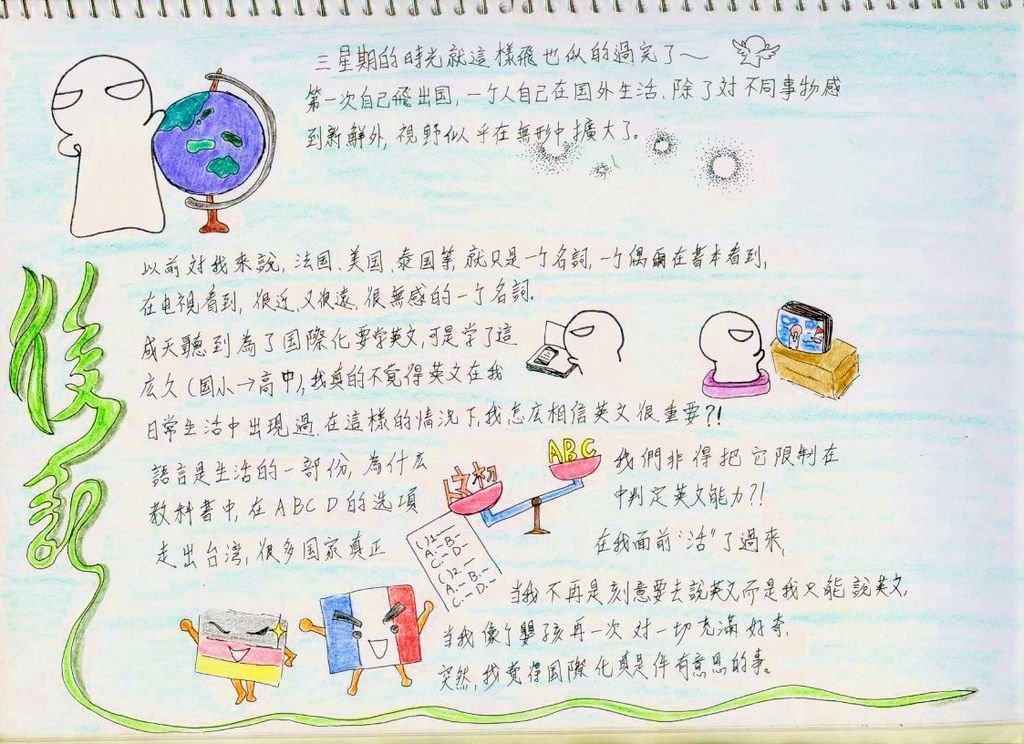 三星期的時光就這樣飛也似的過完了～
第一次自己飛出国，一个人自己在国外生活，除了対不同事物感
到新鮮外，視野似乎在無形中擴大了。
後記
以前対我來說，法国、美国、泰国等，就只是一个名詞，一个偶爾在書本看到，
在电視看到，很近，又很遠，很無感的一个名詞。
成天聽到為了国際化要学英文，可是学了這
広久（国小→高中），我真的不覚得英文在我
日常生活中出現過．在這樣的情況下，我怎広相信英文很重要?!
語言是生活的一部份，為什広
我們非得把它限制在
教科書中，在ABCD的选項
中判定英文能力?!
走出台湾，很多国家真正
在我面前“活”了過來，
ABC
( )1.—
A.— B.—
C.— D.—
( )2.—
A.— B.—
C.— D.—
当我不再是刻意要去說英文而是我只能說英文，
当我像个嬰孩再一次対一切充滿好奇，
突然，我覚得国際化真是件有意思的事。